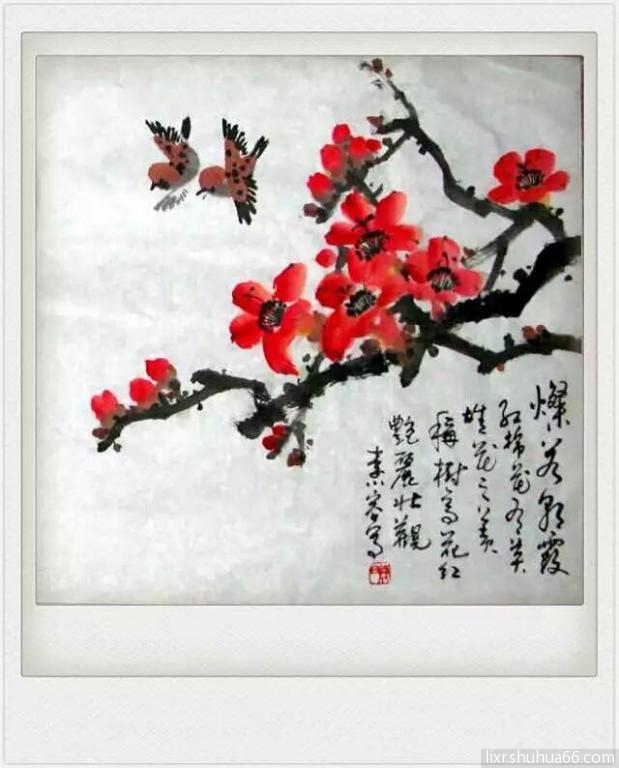 燦若朝霞
红棉花有英
雄花之美
稱樹高花红
艷麗壮觀
素容写
lixr.shuhua66.com